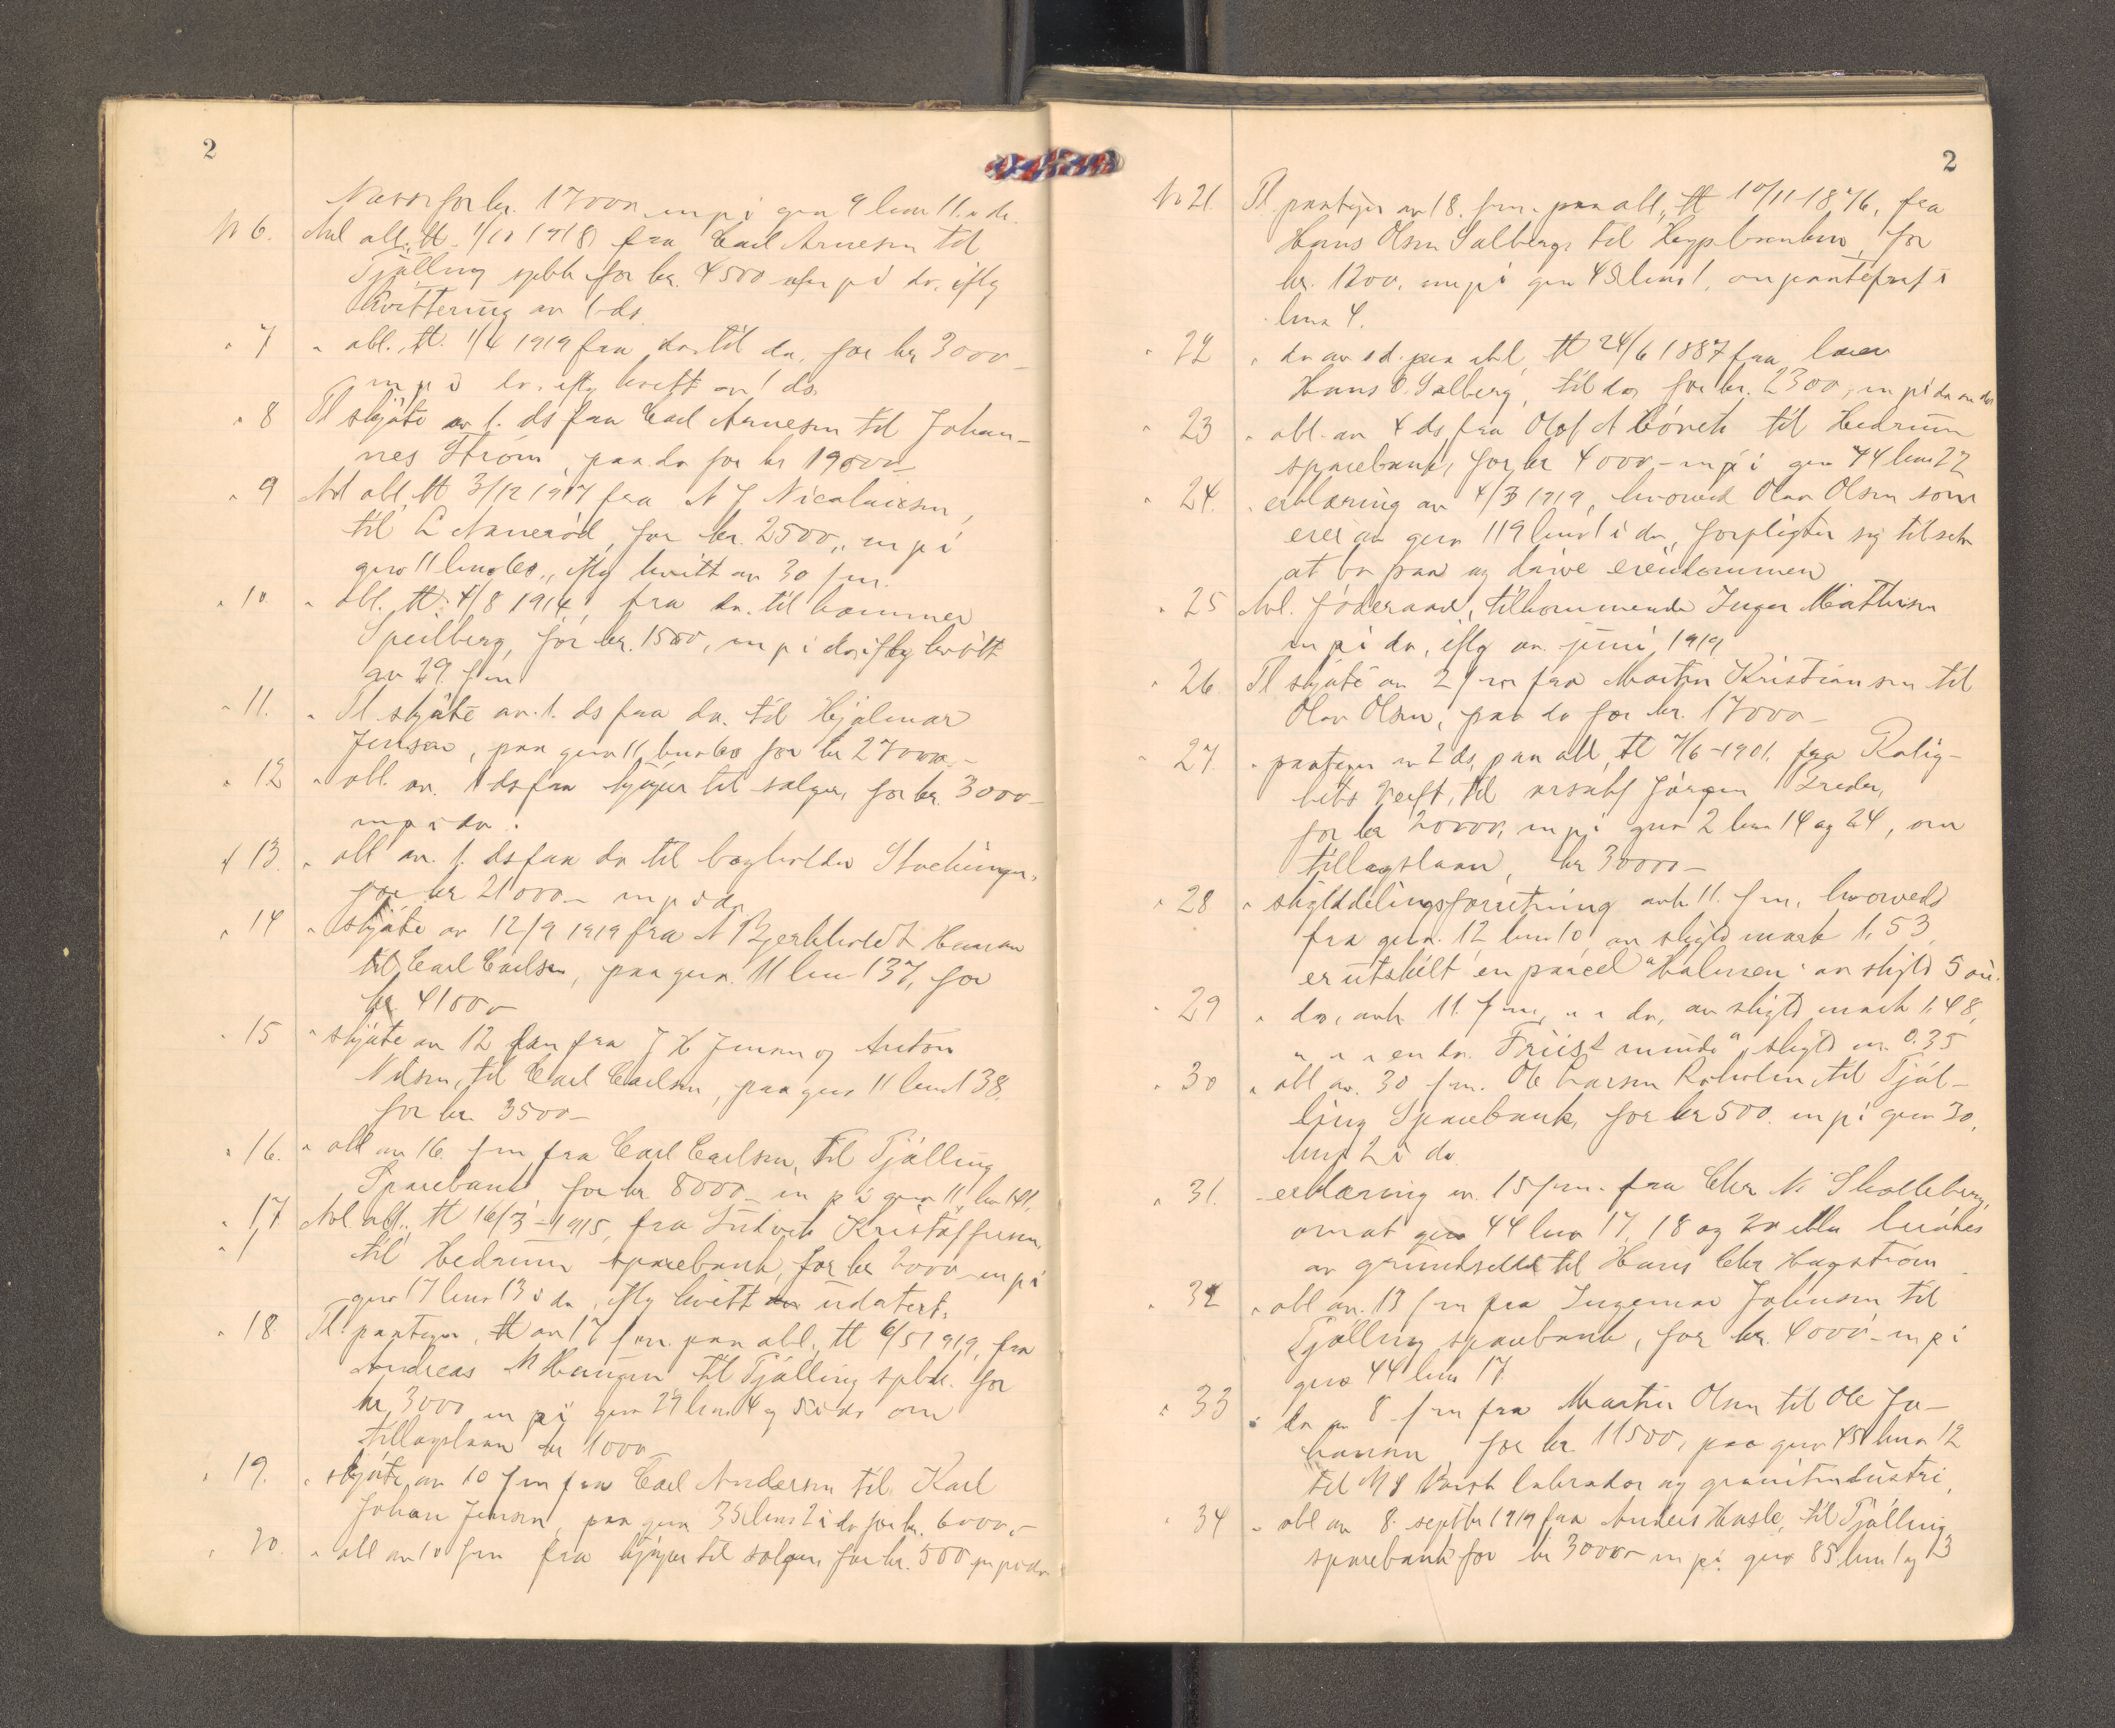 2
for kr. 17000 m p i gno 9 bno 11. i do.
No 6. Avl obl. tl. 1/10 1918 fra Carl Arnesen til
Tjølling spbk for kr. 4500 m p i do. iflg
kvittering av 1 ds
" 7 " obl. tl. 1/4 1919 fra do til do, for kr 3000 –
m p i do. iflg kvitt av 1 ds.
" 8 Tl skjøte av 1. ds fra Carl Arnesen til Johan-
nes Strøm, paa do for kr 19000 –
" 9 Avl obl tl 3/12 1917 fra N J Nicolaisen,
til L Nanerød, for kr. 2500,, m p i
gno 11 bno 60., iflg kvitt av 30 f m.
" 10 " obl. tl. 4/8 1914 fra do. til
Speilberg, for kr. 1500, m p i do, iflg kvitt
av 29. f m
" 11. " Tl skjøte av. 1. ds fra do. til Hjalmar
Jensen, paa gno 11, bno 60 for kr 27000, –
" 12 " obl. av. 1 ds fra kjøper til selger, for kr. 3000 –
m p i do.
" 13. " obl av. 1. ds fra do til bogholder
for kr 21000 – m p i do
" 14 " skjøte av 12/9 1919 fra A Bjerkholdt Hansen
til Carl Carlsen, paa gno. 11 bno 137, for
kr 41000 –
" 15 " skjøte av 12 f m fra J H Jensen og Anton
Nilsen, til Carl Carlsen, paa gno 11 bno 138.
for kr. 3500 –
" 16. " obl av 16. f m fra Carl Carlsen, til Tjølling
Sparebank, for kr 8000 – m p i gno 11, bno 141,
" 17 Avl obl., tl 16/3 – 1915, fra Ludvik Kristoffersen,
" 1 til Hedrum sparebank, for kr 2000 – m p i
gno 17 bno 13 i do, iflg kvitt udatert.
" 18. Tl. panteyer, tl av 17 f m. paa obl., tl 6/5 1919, fra
Andreas M Haugen til Tjølling spbk. for
kr 3000 m p i gno 29 bno 4 og 5 i do om
tillægslaan kr 1000 –
" 19. " skjøte av 10 f m fra Carl Andersen til Karl
Johan Jensen, paa gno 35 bno 2 i do for kr. 6000, –
" 20. " obl av 10 f m fra kjøper til selger, for kr. 500 m p i do
2
No 21. Tl. panteyer av 18. f m. paa obl., tl 10/11 – 1876, fra
Hans Olsen Salberg, til Hypbanken, for
kr. 1200, m p i gno 45 bno 1, om pantefraf i
bno 4.
" 22 " do av s d. paa obl, tl 24/6 1887 fra
Hans O. Salberg, til do, for kr. 2300, m p i do om do
" 23 " obl. av 4 ds, fra Olaf A til Hedrum
sparebank, for kr 4000, – m p i gno 44 bno 22
" 24. " erklæring av 4/3 1919, hvorved Olav Olsen som
eier av gno 119 bno 1 i do, forpligter sig til selv
at bo paa og drive eiendommen
" 25 Avl. føderaad, tilkommende Inger Mathisen
m p i do, iflg av. juni 1919
" 26. Tl skjøte av 2 f m fra Martin Kristiansen til
Olav Olsen, paa do for kr. 17000 –
" 27. " panteyer av 2 ds, paa obl, tl 7/6 – 1901, fra Rolig-
hets Verft, til Jørgen
for kr 20000, m p i gno 2 bno 14 og 24, om
tillægslaan, kr 30000 –
" 28 " skylddelingsforretning avh 11. f m, hvorved
fra gno. 12 bno 10 av skyld mark 1,53
er utskilt en parcel "Holmen" av skyld 5 øre.
" 29 " do, avh 11 f m, " " do, av skyld mark 1,48,
" " " en do. "Friist minde", skyld m. 0.35
" 30 " obl av 30 f m. Ole Larsen til Tjøl-
ling Sparebank, for kr 500 m p i gno 30,
bno 2 i do.
" 31. " erklæring av 15 f m. fra Chr N Skalleberg
om at gno 44 bno 17, 18 og 20 ikke
av grundseddel til Hans Chr Hagstrøm
" 32 " obl av. 13 f m fra Ingemar Johnsen til
Tjølling sparebank, for kr. 4000 – m p i
gno 44 bno 17
" 33 " do av 8 f m fra Martin Olsen til Ole Jo-
hansen for kr. 11500, paa gno 45 bno 12
til A/S Norsk labrador og granitindustri,
" 34 " obl av 8. septbr 1919 fra Anders Hasle, til Tjølling
sparebank for kr 30000 – m p i gno 85 bno 1 og 3